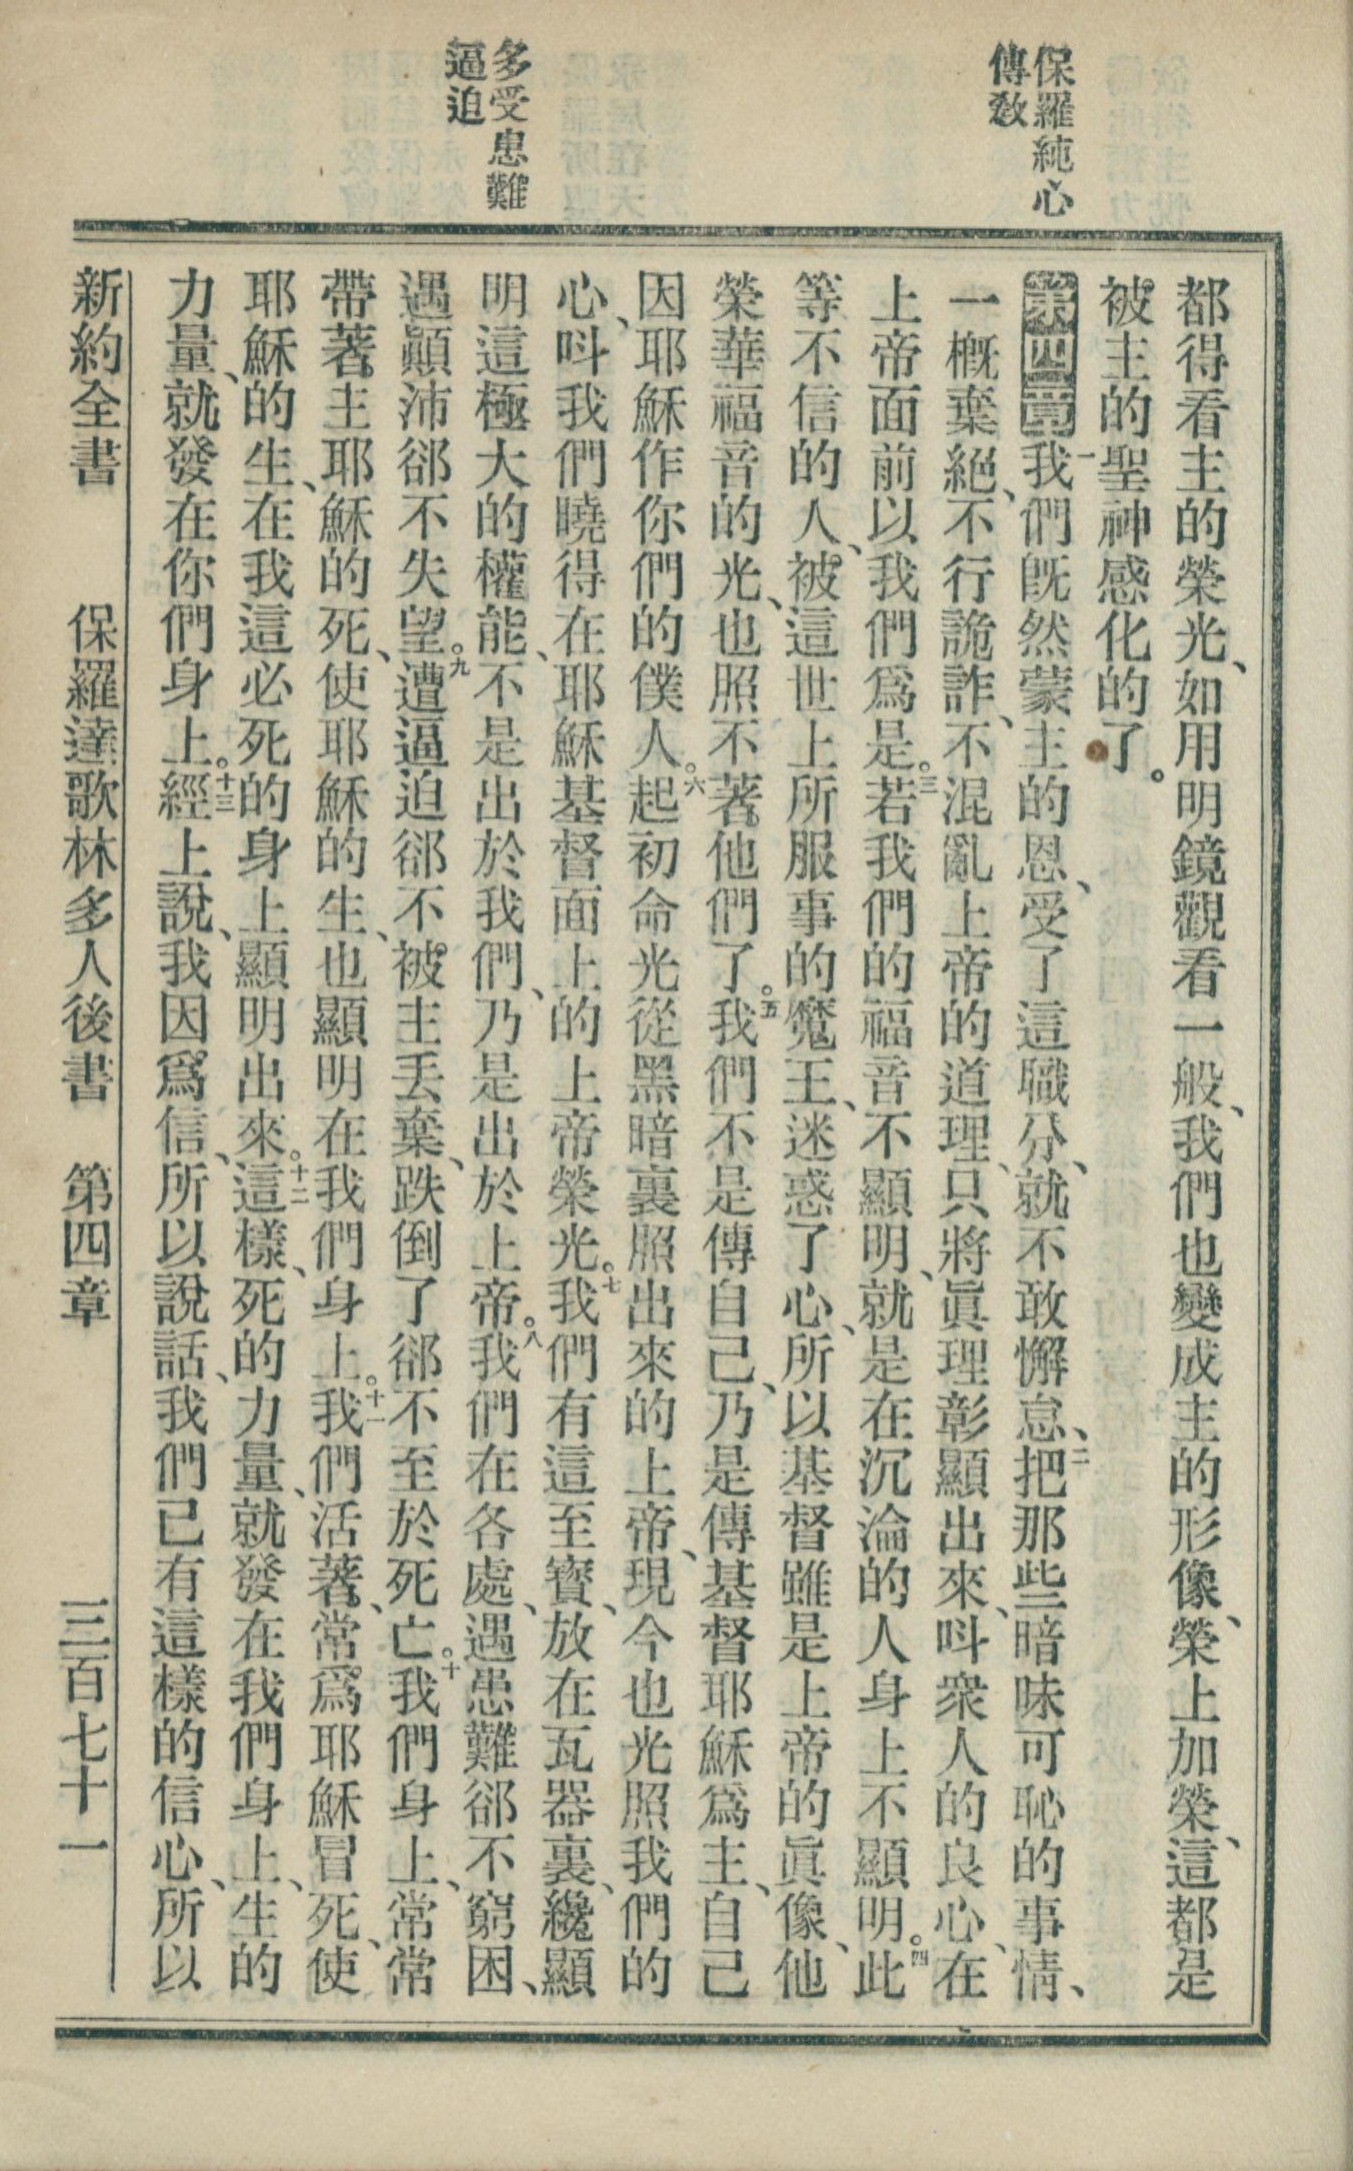 保羅純心
傳教
多受患難
逼迫
都得看主的榮光、如用明鏡觀看一般、我們也變成主的形像、榮上加榮、這都是
被主的聖神感化的了。
第四章一我們旣然蒙主的恩、受了這職分、就不敢懈怠、二把那些暗昧可恥的事情、
一槪棄絕、不行詭詐、不混亂上帝的道理、只將眞理彰顯出來、呌衆人的良心、在
上帝面前以我們爲是。三若我們的福音不顯明、就是在沉淪的人身上不顯明。四此
等不信的人、被這世上所服事的魔王、迷惑了心、所以基督雖是上帝的眞像、他
榮華福音的光、也照不著他們了。五我們不是傳自己、乃是傳基督耶穌爲主、自己
因耶穌作你們的僕人。六起初命光從黑暗裏照出來的上帝、現今也光照我們的
心、呌我們曉得在耶穌基督面上的上帝榮光。七我們有這至寶、放在瓦器裏、纔顯
明這極大的權能、不是出於我們、乃是出於上帝。八我們在各處、遇患難郤不窮困、
遇顚沛郤不失望。九遭逼迫郤不被主丟棄、跌倒了郤不至於死亡。十我們身上、常常
帶著主耶穌的死、使耶穌的生、也顯明在我們身上。十一我們活著、常爲耶穌冒死、使
耶穌的生、在我這必死的身上顯明出來。十二這樣、死的力量、就發在我們身上、生的
力量、就發在你們身上。十三經上說、我因爲信、所以說話、我們已有這樣的信心、所以
新約全書 保羅達歌林多人後書 第四章 三百七十一